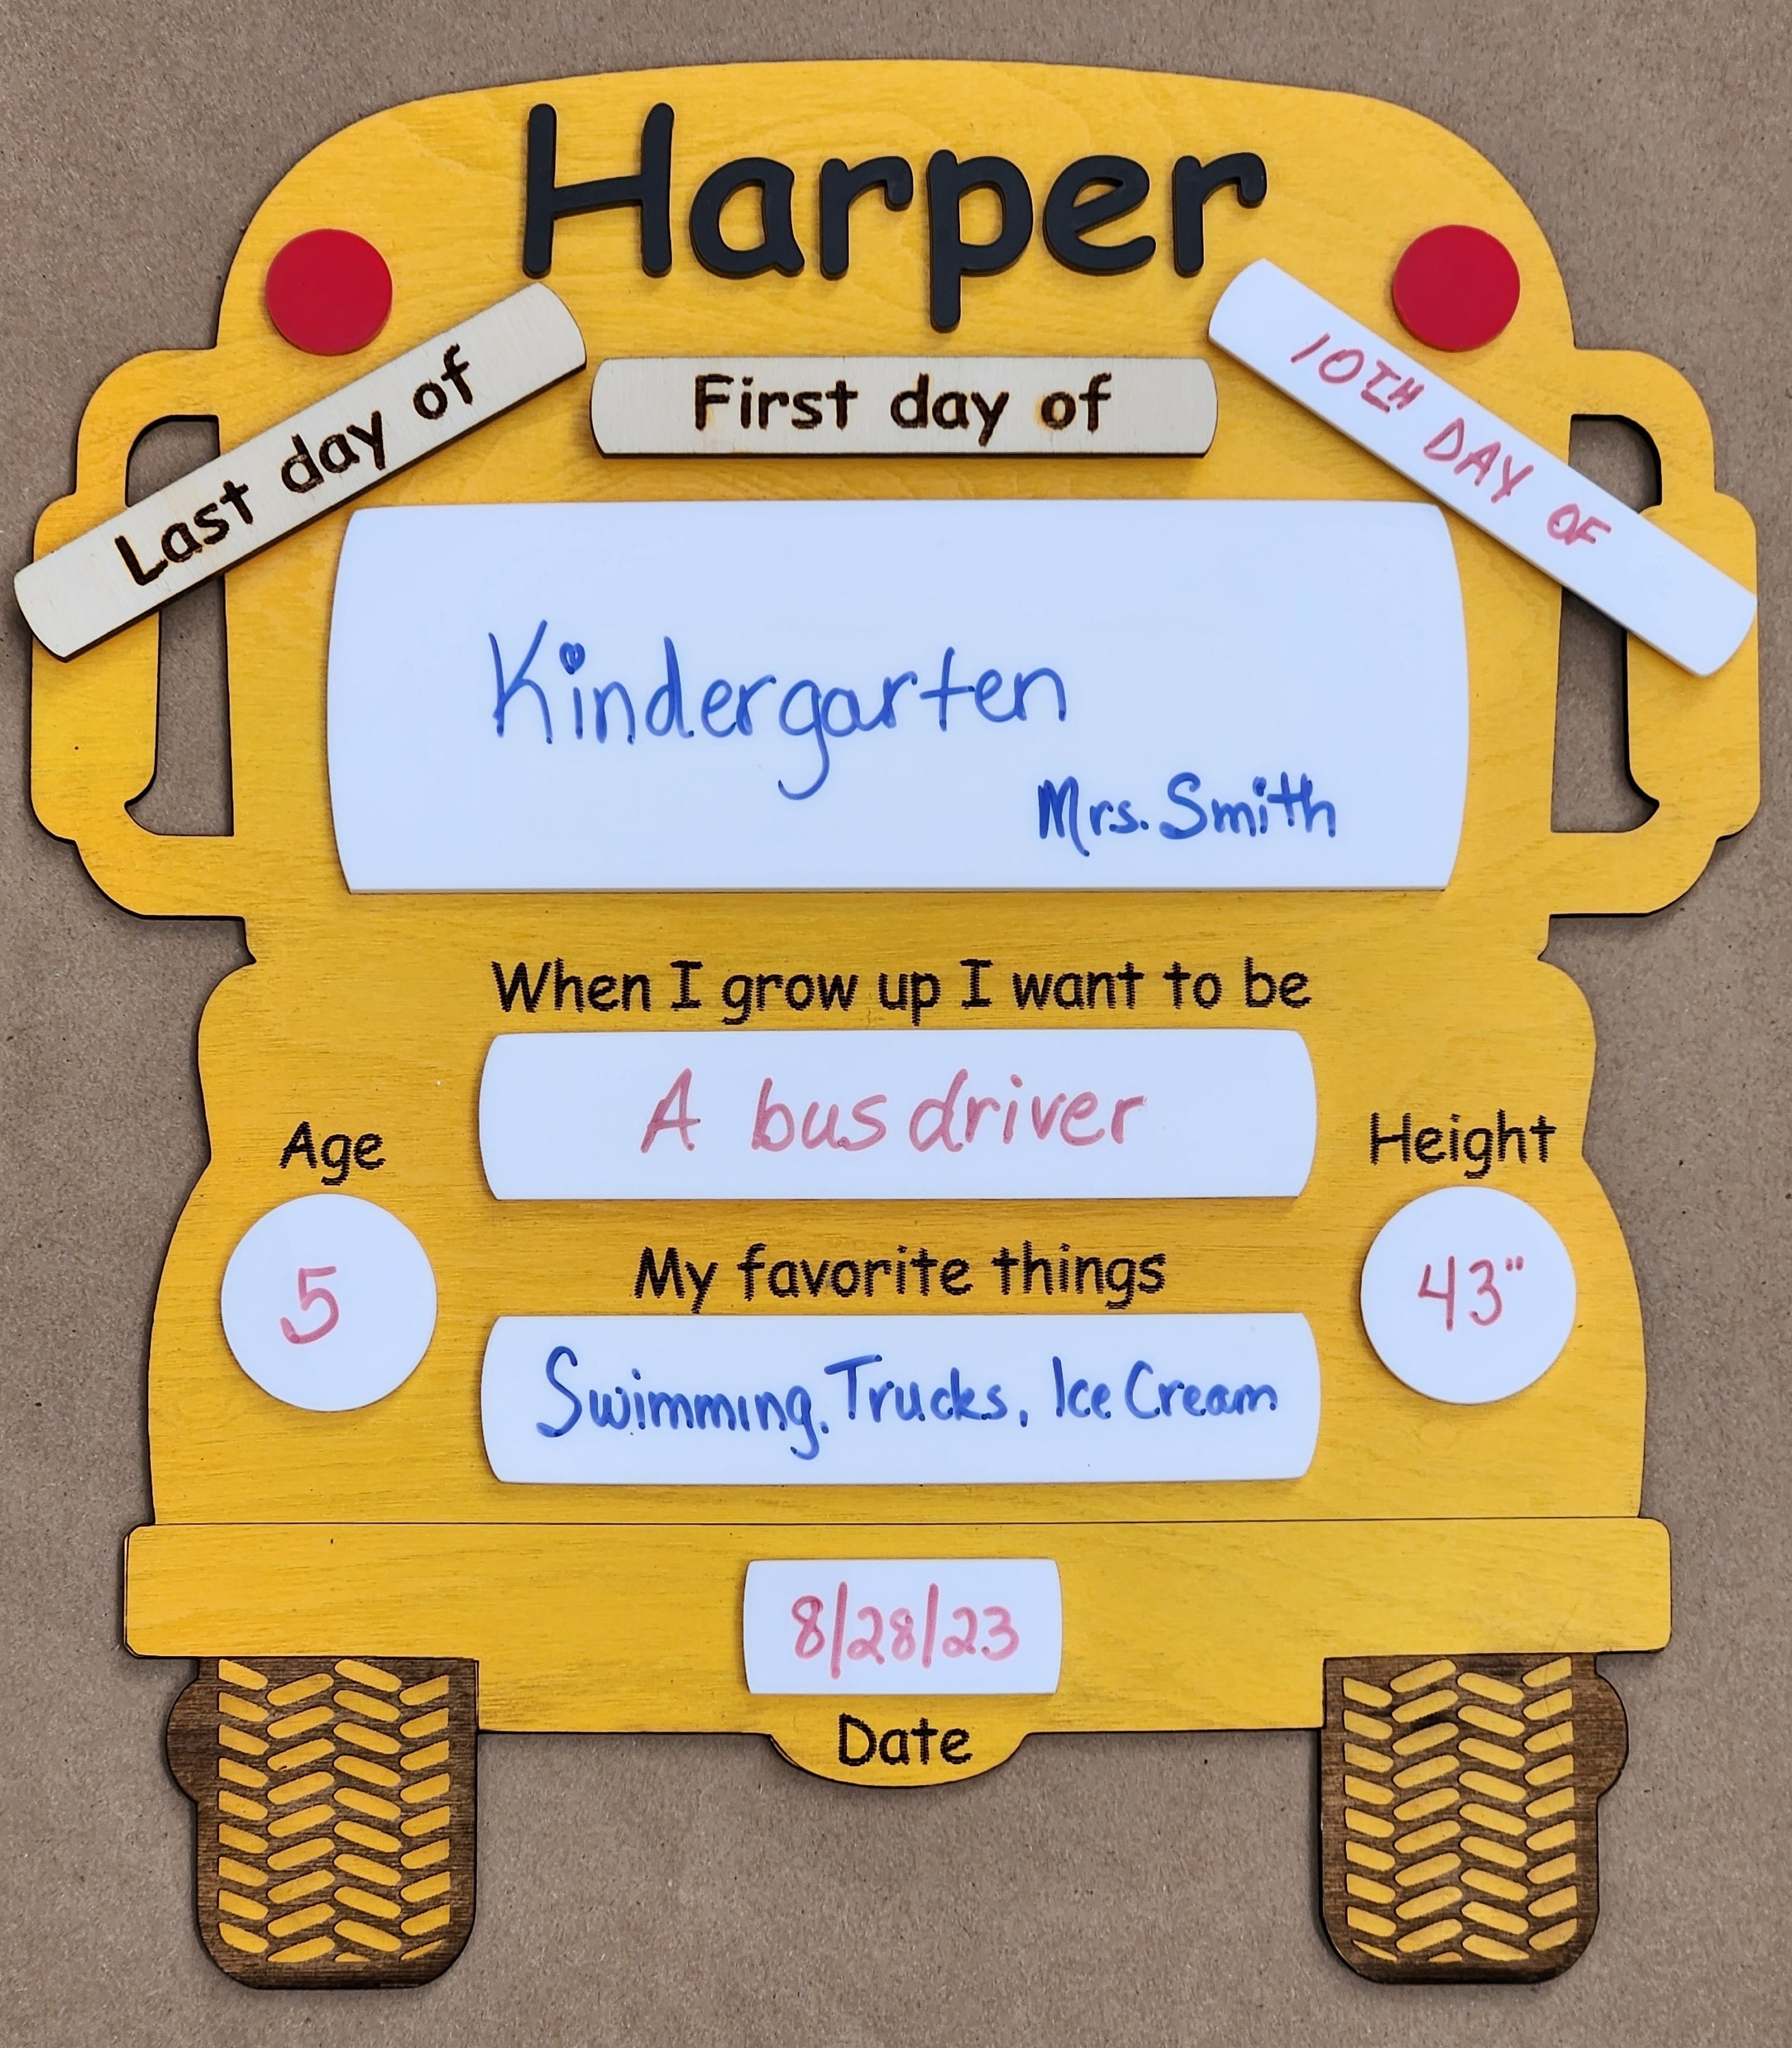 Harper
Last day of
First day of
10TH DAY OF
Kindergarten
Mrs. Smith
When I grow up I want to be
A bus driver
Age
5
Height
43"
My favorite things
Swimming, Trucks, Ice Cream
8/28/23
Date